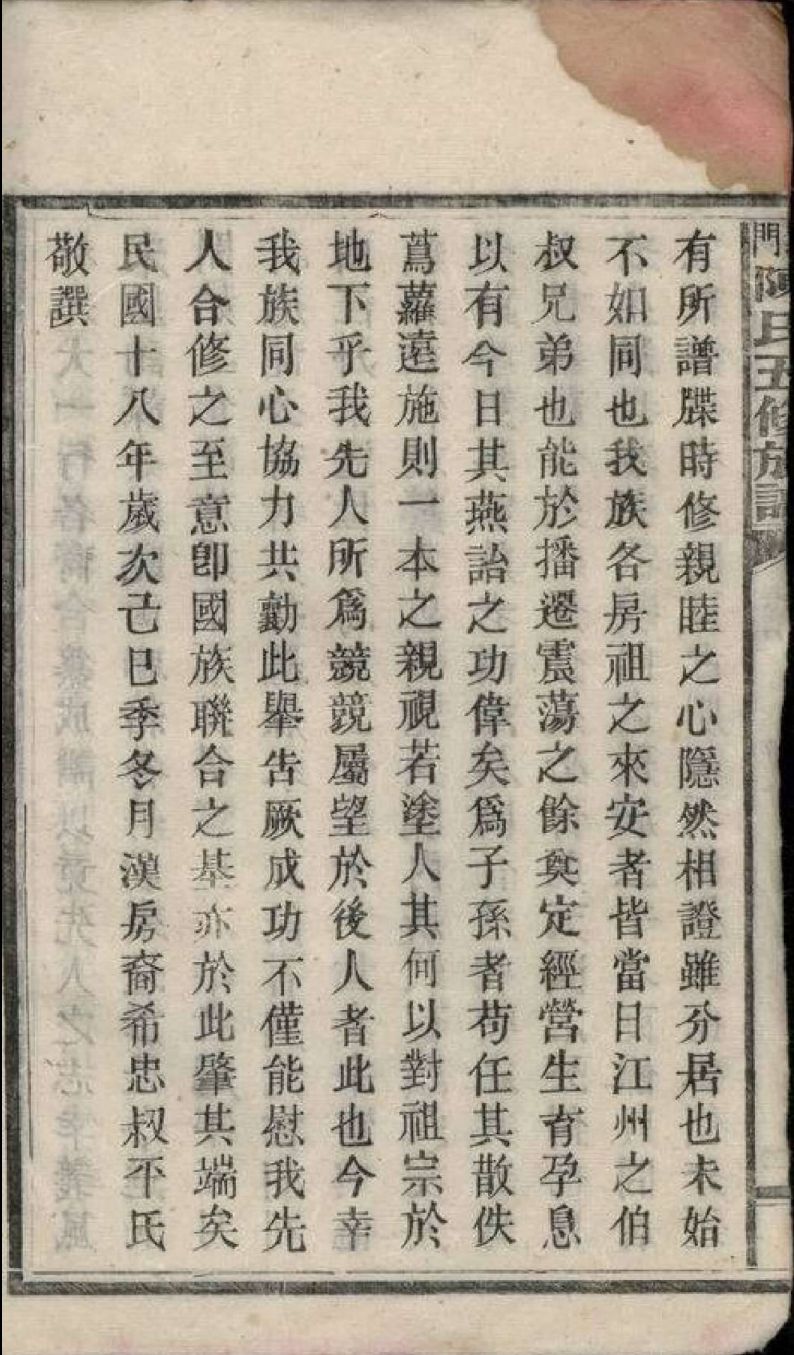 門陳氏五修族譜
有所譜牒時修親睦之心隱然相證雖分居也未始
不如同也我族各房祖之來安者皆當日江州之伯
叔兄弟也能於播遷震蕩之餘奠定經營生育孕息
以有今日其燕詒之功偉矣爲子孫者苟任其散佚
蔦蘿遠施則一本之親視若塗人其何以對祖宗於
地下乎我先人所爲競競屬望於後人者此也今幸
我族同心協力共勷此舉告厥成功不僅能慰我先
人合修之至意卽國族聯合之基亦於此肇其端矣
民國十八年歲次己巳季冬月漢房裔希忠叔平氏
敬譔